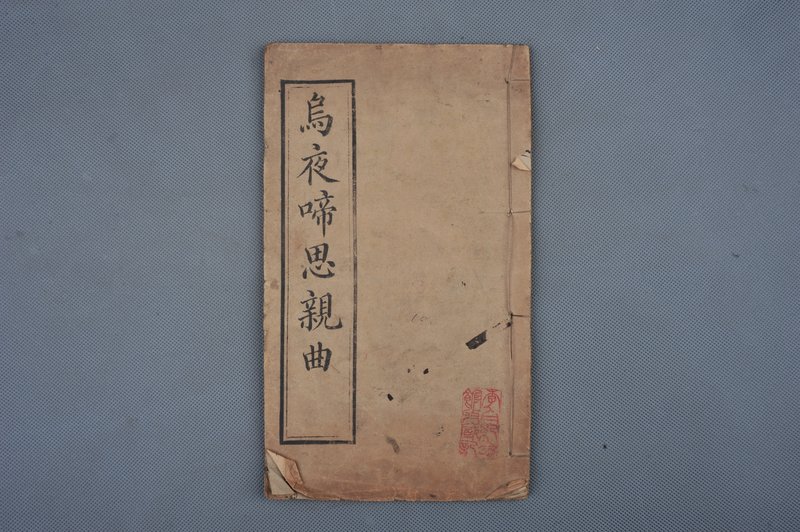 烏夜啼思親曲